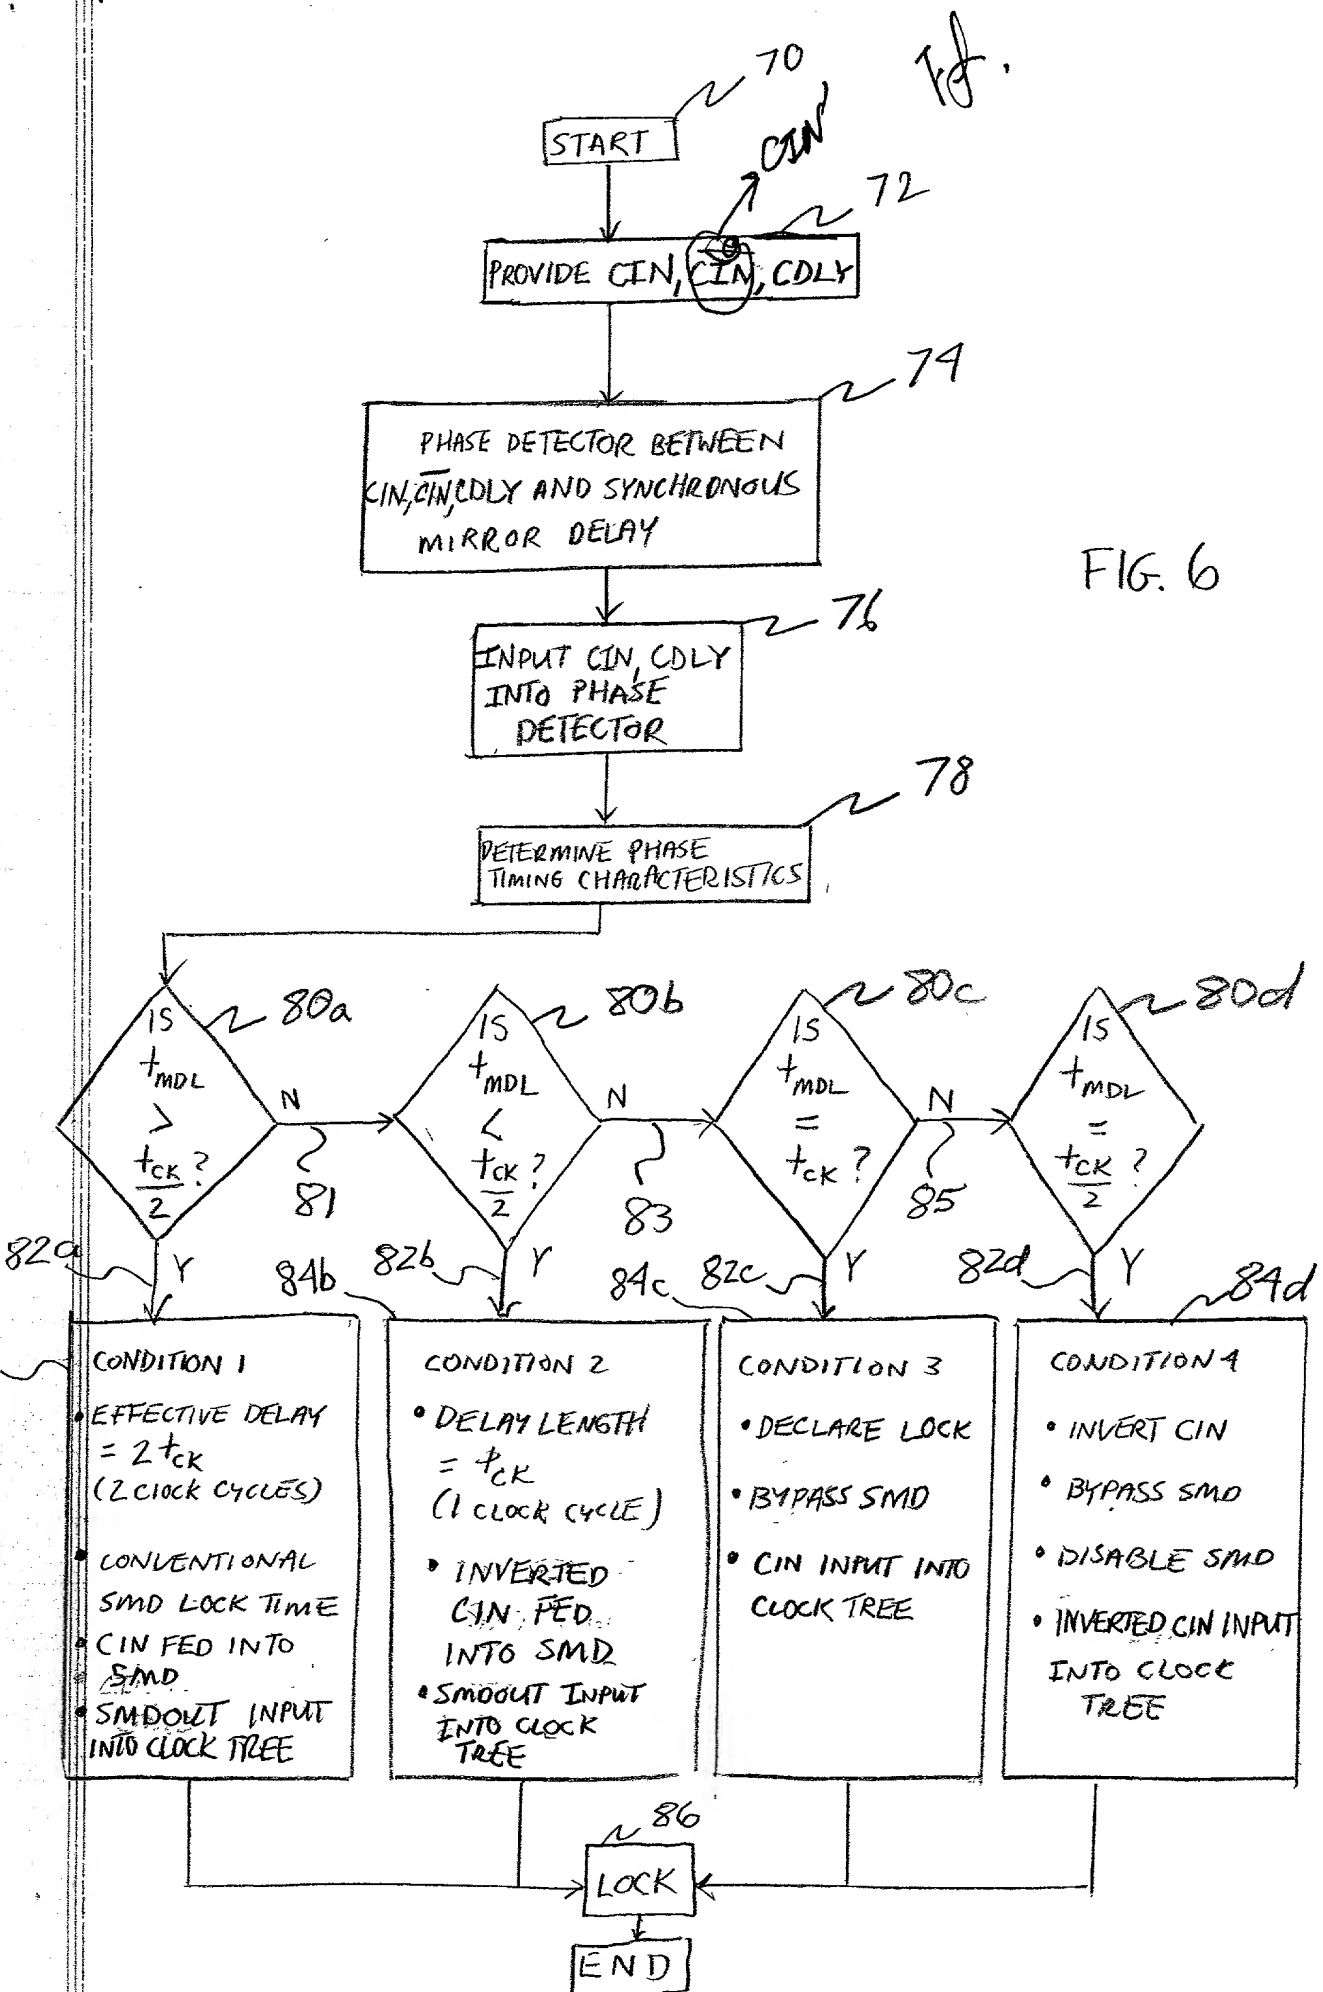 70
START
CIN'
72
PROVIDE CIN, C̅I̅N̅, CDLY
74
PHASE DETECTOR BETWEEN
CIN, C̅I̅N̅, CDLY AND SYNCHRONOUS
MIRROR DELAY
FIG. 6
76
INPUT CIN, CDLY
INTO PHASE
DETECTOR
78
DETERMINE PHASE
TIMING CHARACTERISTICS
80a
IS
tMDL
>
tCK
2
?
N
81
80b
IS
tMDL
<
tCK
2
?
N
83
80c
IS
tMDL
=
tCK ?
N
85
80d
IS
tMDL
=
tCK
2
?
82a
Y
84b
82b
Y
84c
82c
Y
82d
Y
84d
CONDITION 1
• EFFECTIVE DELAY
= 2 tCK
(2 CLOCK CYCLES)
• CONVENTIONAL
SMD LOCK TIME
• CIN FED INTO
SMD
• SMDOUT INPUT
INTO CLOCK TREE
CONDITION 2
• DELAY LENGTH
= tCK
(1 CLOCK CYCLE)
• INVERTED
CIN FED
INTO SMD
• SMDOUT INPUT
INTO CLOCK
TREE
CONDITION 3
• DECLARE LOCK
• BYPASS SMD
• CIN INPUT INTO
CLOCK TREE
CONDITION 4
• INVERT CIN
• BYPASS SMD
• DISABLE SMD
• INVERTED CIN INPUT
INTO CLOCK
TREE
86
LOCK
END